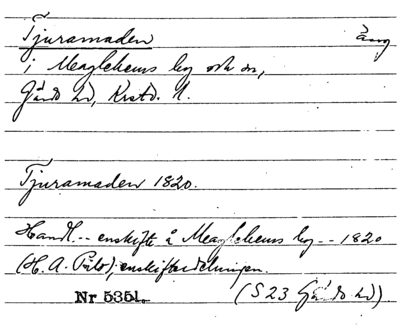 Tjuramaden äng
i Meaglehems by och sn,
Gärds hd, Krstd. l.
Tjuramaden 1820.
Handl. -- enskifte å Meaglehems by -- 1820
(H. A. ); enskiftesdelningen.
Nr 5351. (S 23 Gärds hd).